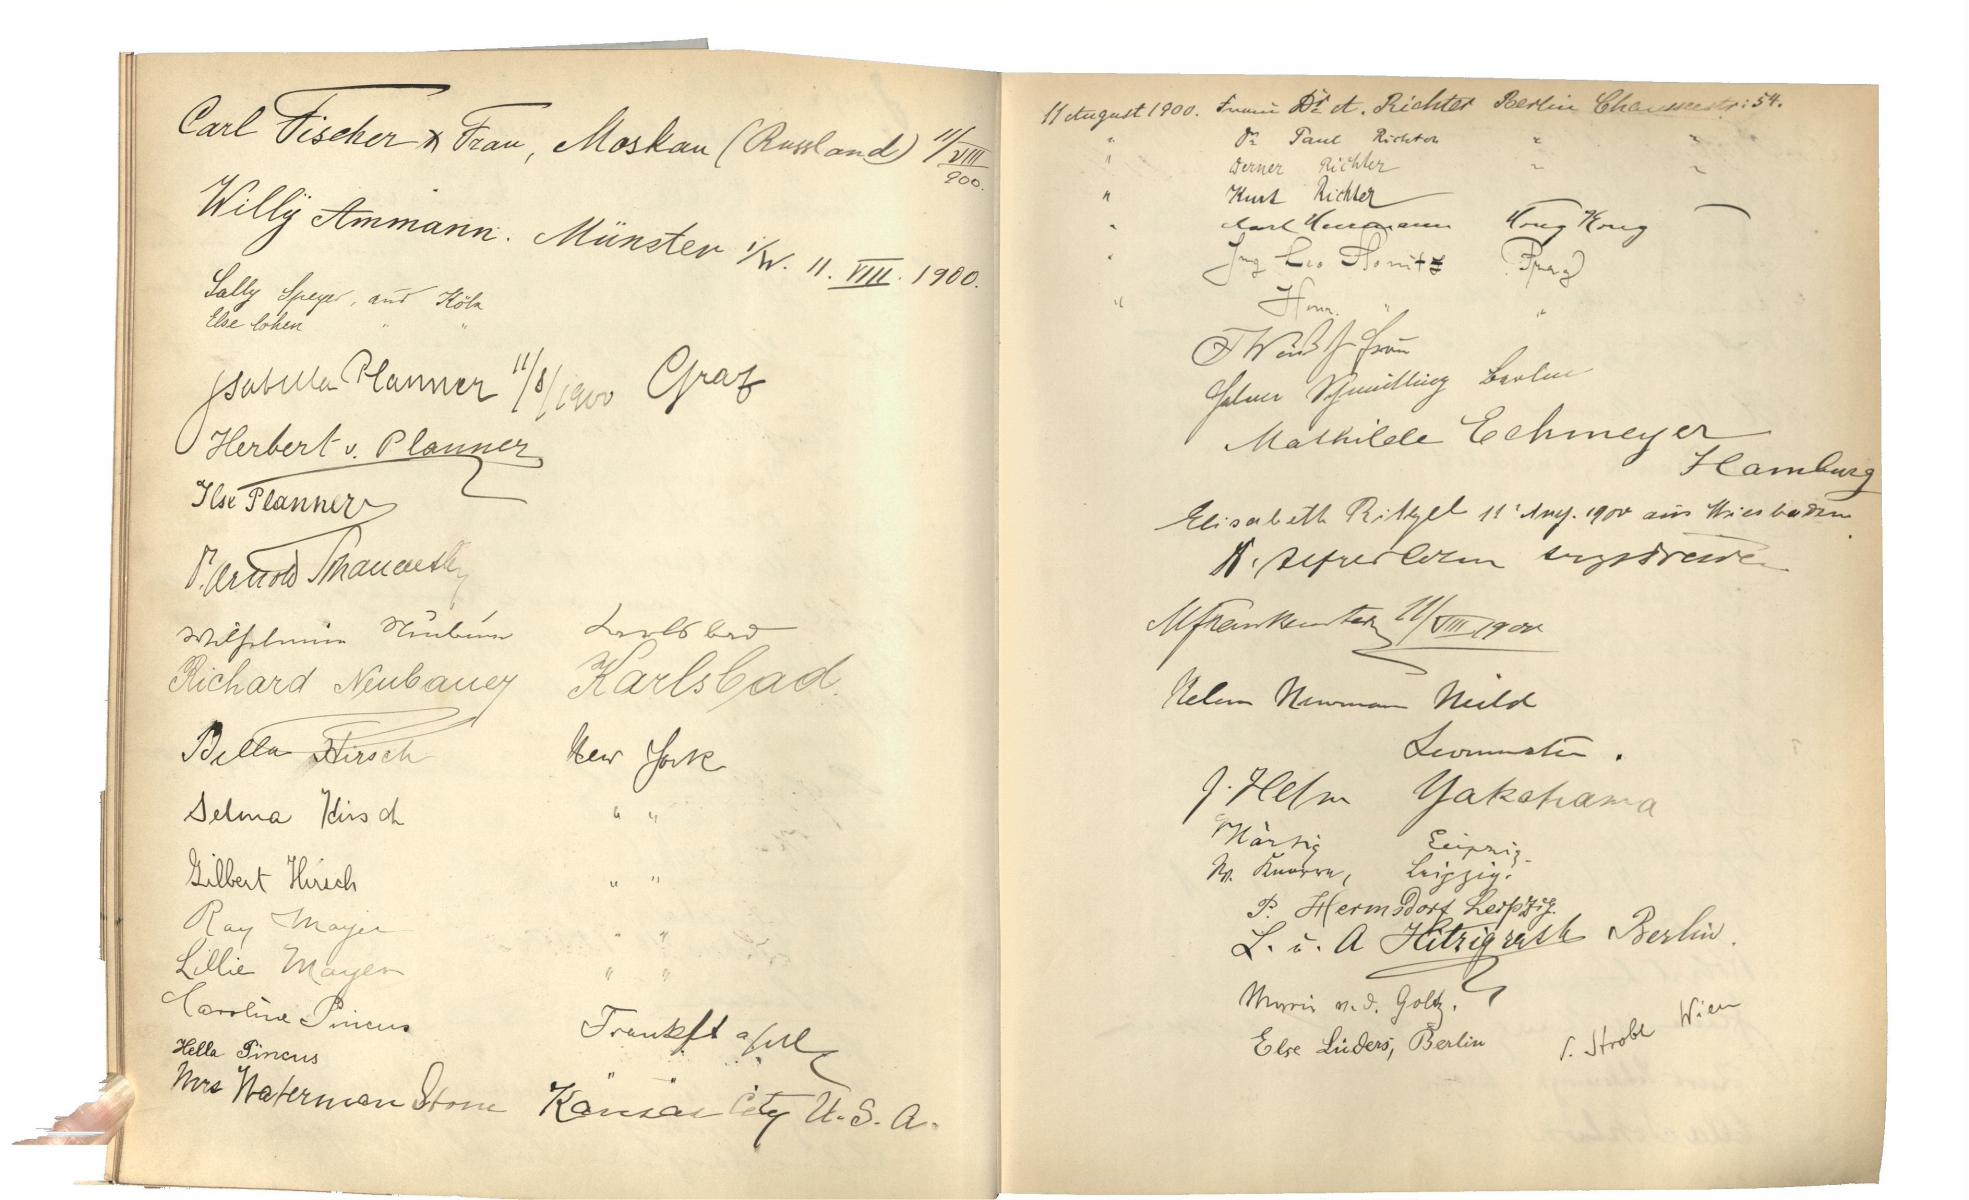 Carl Fischer & Frau, Moskau (Russland) 11/VIII 900.
Willÿ Ammann. Münster i/W. 11. VIII. 1900.
Sally Speyer, aus Köln
Else Cohen " "
Isabella Planner 11/8/1900 Graz
Herbert v. Planner
Ilse Planner
Arnold
Karlsbad
Richard Neubauer Karlsbad.
Bella Hirsch New York
Selma Hirsch " "
Gilbert Hirsch " "
Ray Mayer " "
Lillie Mayer " "
Caroline Pincus Frankft
Hella Pincus " "
Mrs Waterman Stone Kansas City U.S.A.
11 August 1900. Frau Dr A. Richter Berlin Chausseestr: 54.
" Dr Paul Richter " "
" Werner Richter " "
" Kurt Richter
" Carl Hong Kong
" Ing Leo Prag
"
Berlin
Mathilde Echmeyer
Hamburg
Elisabeth Ritzel 11' Aug. 1900 aus Wiesbaden.
11/VIII 1900
Helen Newman Neild
Leominster.
J. Helm Yakohama
Härtig Leipzig.
Leipzig.
P. Hermsdorf Leipzig.
L. u. A Hitzigrath Berlin.
v. d. Goltz.
Else Lüders, Berlin
Strobl Wien